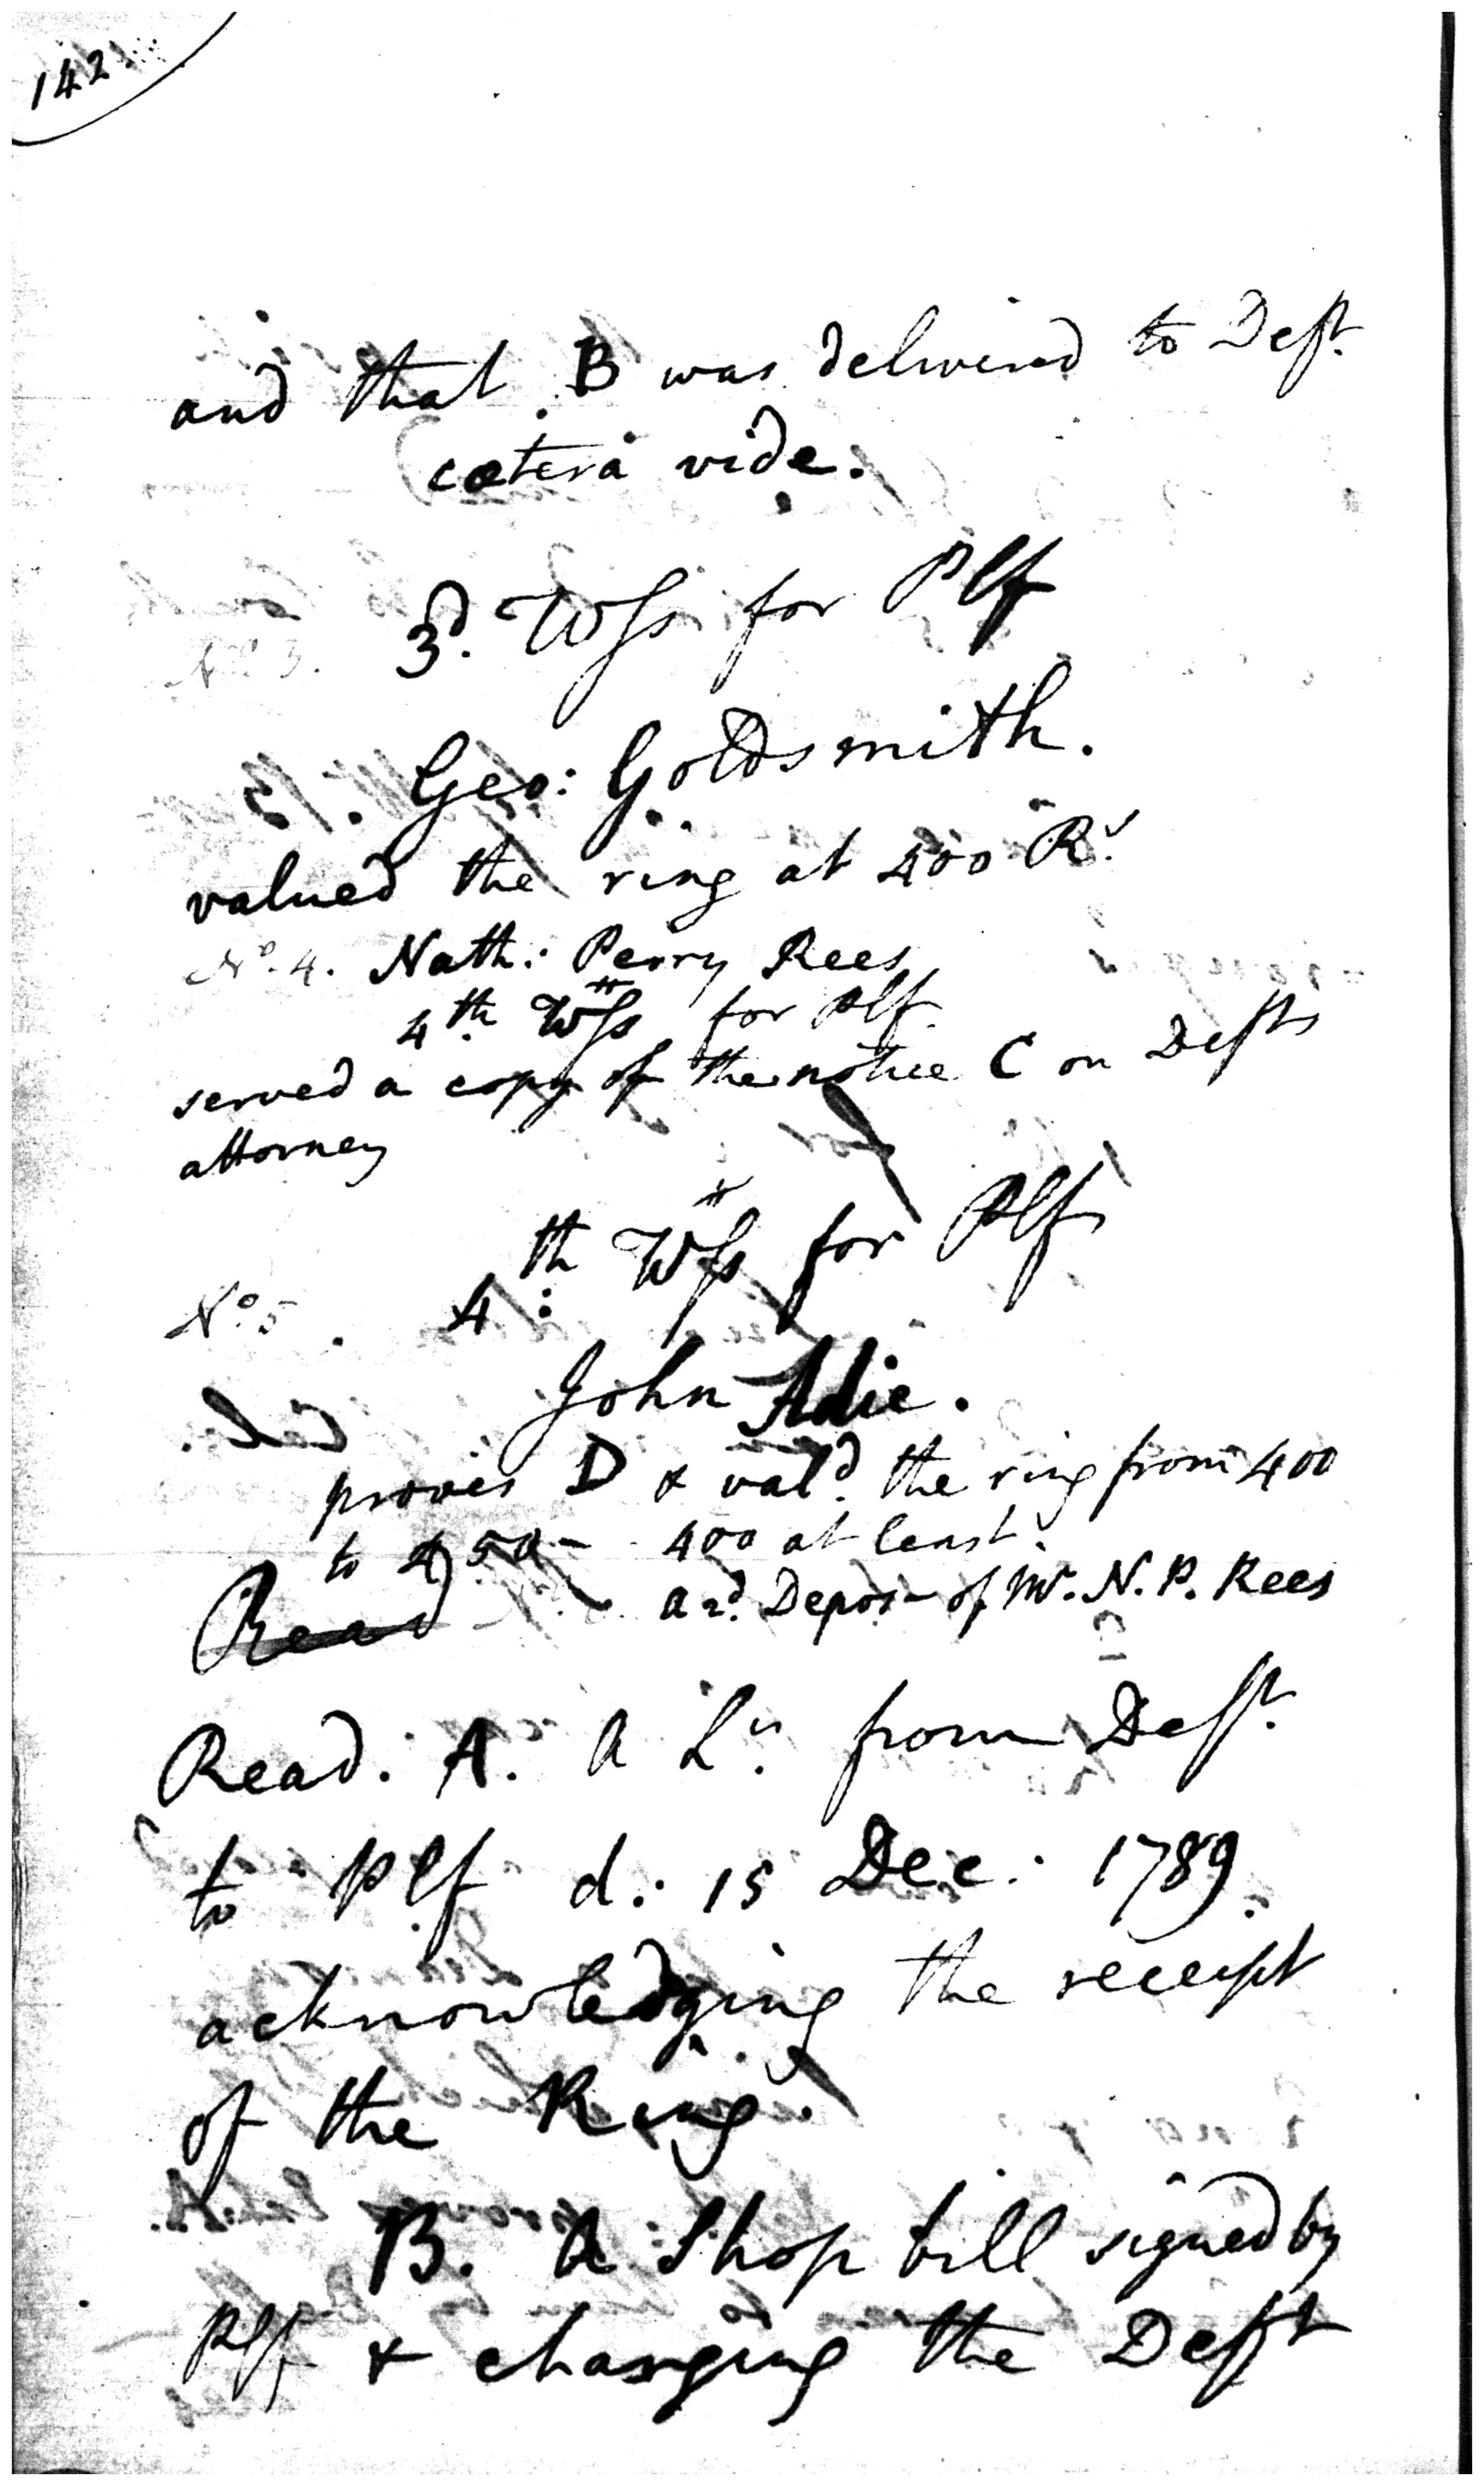 142
and that B was delivered to Deft.
cætera vide.
No. 3. 3d. Wss for Plf
Geo: Goldsmith.
valued the ring at 400 Rs.
No. 4. Nath: Perry Rees
4th Wss for Plf
served a copy of the notice C on Defts
attorney
No. 5. 4th: Wss for Plf
John Adie.
proves D & vald. the ring from 400
to 450 - 400 at least.
Read
Depos- of Mr. N. P. Rees
Read. A. a Lr. from Deft.
to Plf d: 15 Dec: 1789.
acknowledging the receipt
of the Ring.
B. A Shop bill signed by
Plf & charging the Deft